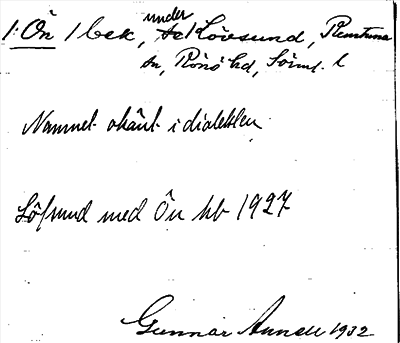 1: Ön / bek, under Lövsund, Runtuna
sn, Rönö hd, Sörml. l
Namnet okänt i dialekten
Löfsund med Ön kb 1927
Gunnar 1932